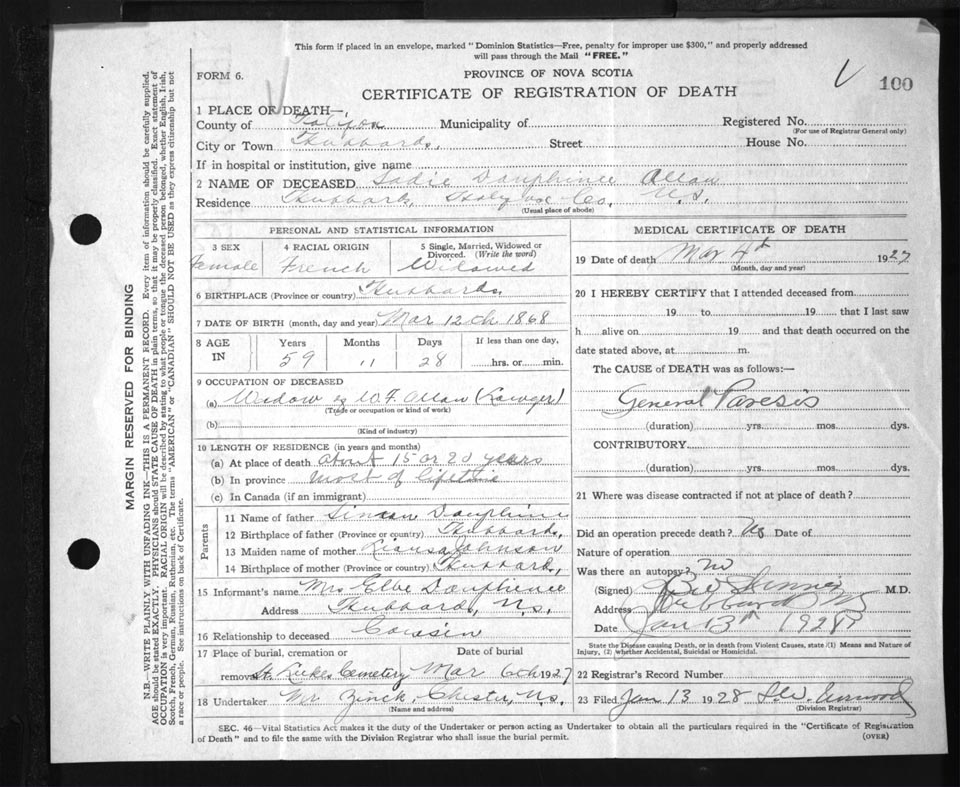 This form if placed in an envelope, marked "Dominion Statistics—Free, penalty for improper use $300," and properly addressed
will pass through the Mail "FREE."
FORM 6.
PROVINCE OF NOVA SCOTIA
100
CERTIFICATE OF REGISTRATION OF DEATH
1 PLACE OF DEATH—
County of Halifax Municipality of Registered No.
(For use of Registrar General only)
City or Town Hubbards, Street House No.
If in hospital or institution, give name
2 NAME OF DECEASED Sadie Dauphinee Allan
Residence Hubbards, Halifax Co. N.S.
(Usual place of abode)
PERSONAL AND STATISTICAL INFORMATION
3 SEX 4 RACIAL ORIGIN 5 Single, Married, Widowed or
Divorced. (Write the word)
Female French Widowed
6 BIRTHPLACE (Province or country) Hubbards,
7 DATE OF BIRTH (month, day and year) Mar 12th 1868
8 AGE IN Years Months Days If less than one day,
59 11 28 hrs. or min.
9 OCCUPATION OF DECEASED
(a) Widow of W. F. Allan
(Trade or occupation or kind of work)
(b)
(Kind of industry)
10 LENGTH OF RESIDENCE (in years and months)
(a) At place of death about 15 or 20 years
(b) In province most of lifetime
(c) In Canada (if an immigrant)
Parents
11 Name of father Simeon Dauphinee
12 Birthplace of father (Province or country) Hubbards,
13 Maiden name of mother Johnson
14 Birthplace of mother (Province or country) Hubbards,
15 Informant's name Mrs Dauphinee
Address Hubbards, N.S.
16 Relationship to deceased Cousin
17 Place of burial, cremation or Date of burial
removal St. Lukes Cemetery Mar 6th 1927
18 Undertaker Mr Zinck, Chester, N.S.
(Name and address)
MEDICAL CERTIFICATE OF DEATH
19 Date of death Mar 4th 1927
(Month, day and year)
20 I HEREBY CERTIFY that I attended deceased from
19 to 19 that I last saw
h alive on 19 and that death occurred on the
date stated above, at m.
The CAUSE of DEATH was as follows:—
General Paresis
(duration) yrs. mos. dys.
CONTRIBUTORY
(duration) yrs. mos. dys.
21 Where was disease contracted if not at place of death?
Did an operation precede death? No Date of
Nature of operation
Was there an autopsy? no
(Signed) M.D.
Address Hubbards NS
Date Jan 13th 1928
State the Disease causing Death, or in death from Violent Causes, state (1) Means and Nature of
Injury, (2) whether Accidental, Suicidal or Homicidal.
22 Registrar's Record Number
23 Filed Jan 13 1928
(Division Registrar)
SEC. 46—Vital Statistics Act makes it the duty of the Undertaker or person acting as Undertaker to obtain all the particulars required in the "Certificate of Registration
of Death" and to file the same with the Division Registrar who shall issue the burial permit.
(OVER)
MARGIN RESERVED FOR BINDING
N.B.—WRITE PLAINLY WITH UNFADING INK—THIS IS A PERMANENT RECORD. Every item of information should be carefully supplied.
AGE should be stated EXACTLY. PHYSICIANS should STATE CAUSE OF DEATH in plain terms, so that it may be properly classified. Exact statement of
OCCUPATION is very important. RACIAL ORIGIN will be described by stating to what people or tongue the deceased person belonged, whether English, Irish,
Scotch, French, German, Russian, Ruthenian, etc. The terms "AMERICAN" or "CANADIAN" SHOULD NOT BE USED as they express citizenship but not
a race or people. See instructions on back of Certificate.